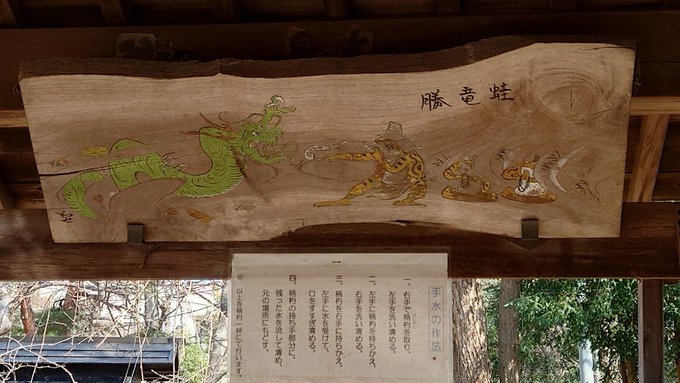 勝竜蛙
手水の作法
一、右手で柄杓を取り、
左手を洗い清める。
二、左手に柄杓を持ちかえ、
右手を洗い清める。
三、柄杓を右手に持ちかえ、
左手に水を受けて、
口をすすぎ清める。
四、柄杓の持ち手部分に、
残った水を流して清め、
元の場所にもどす。
※以上を柄杓一杯にて行います。